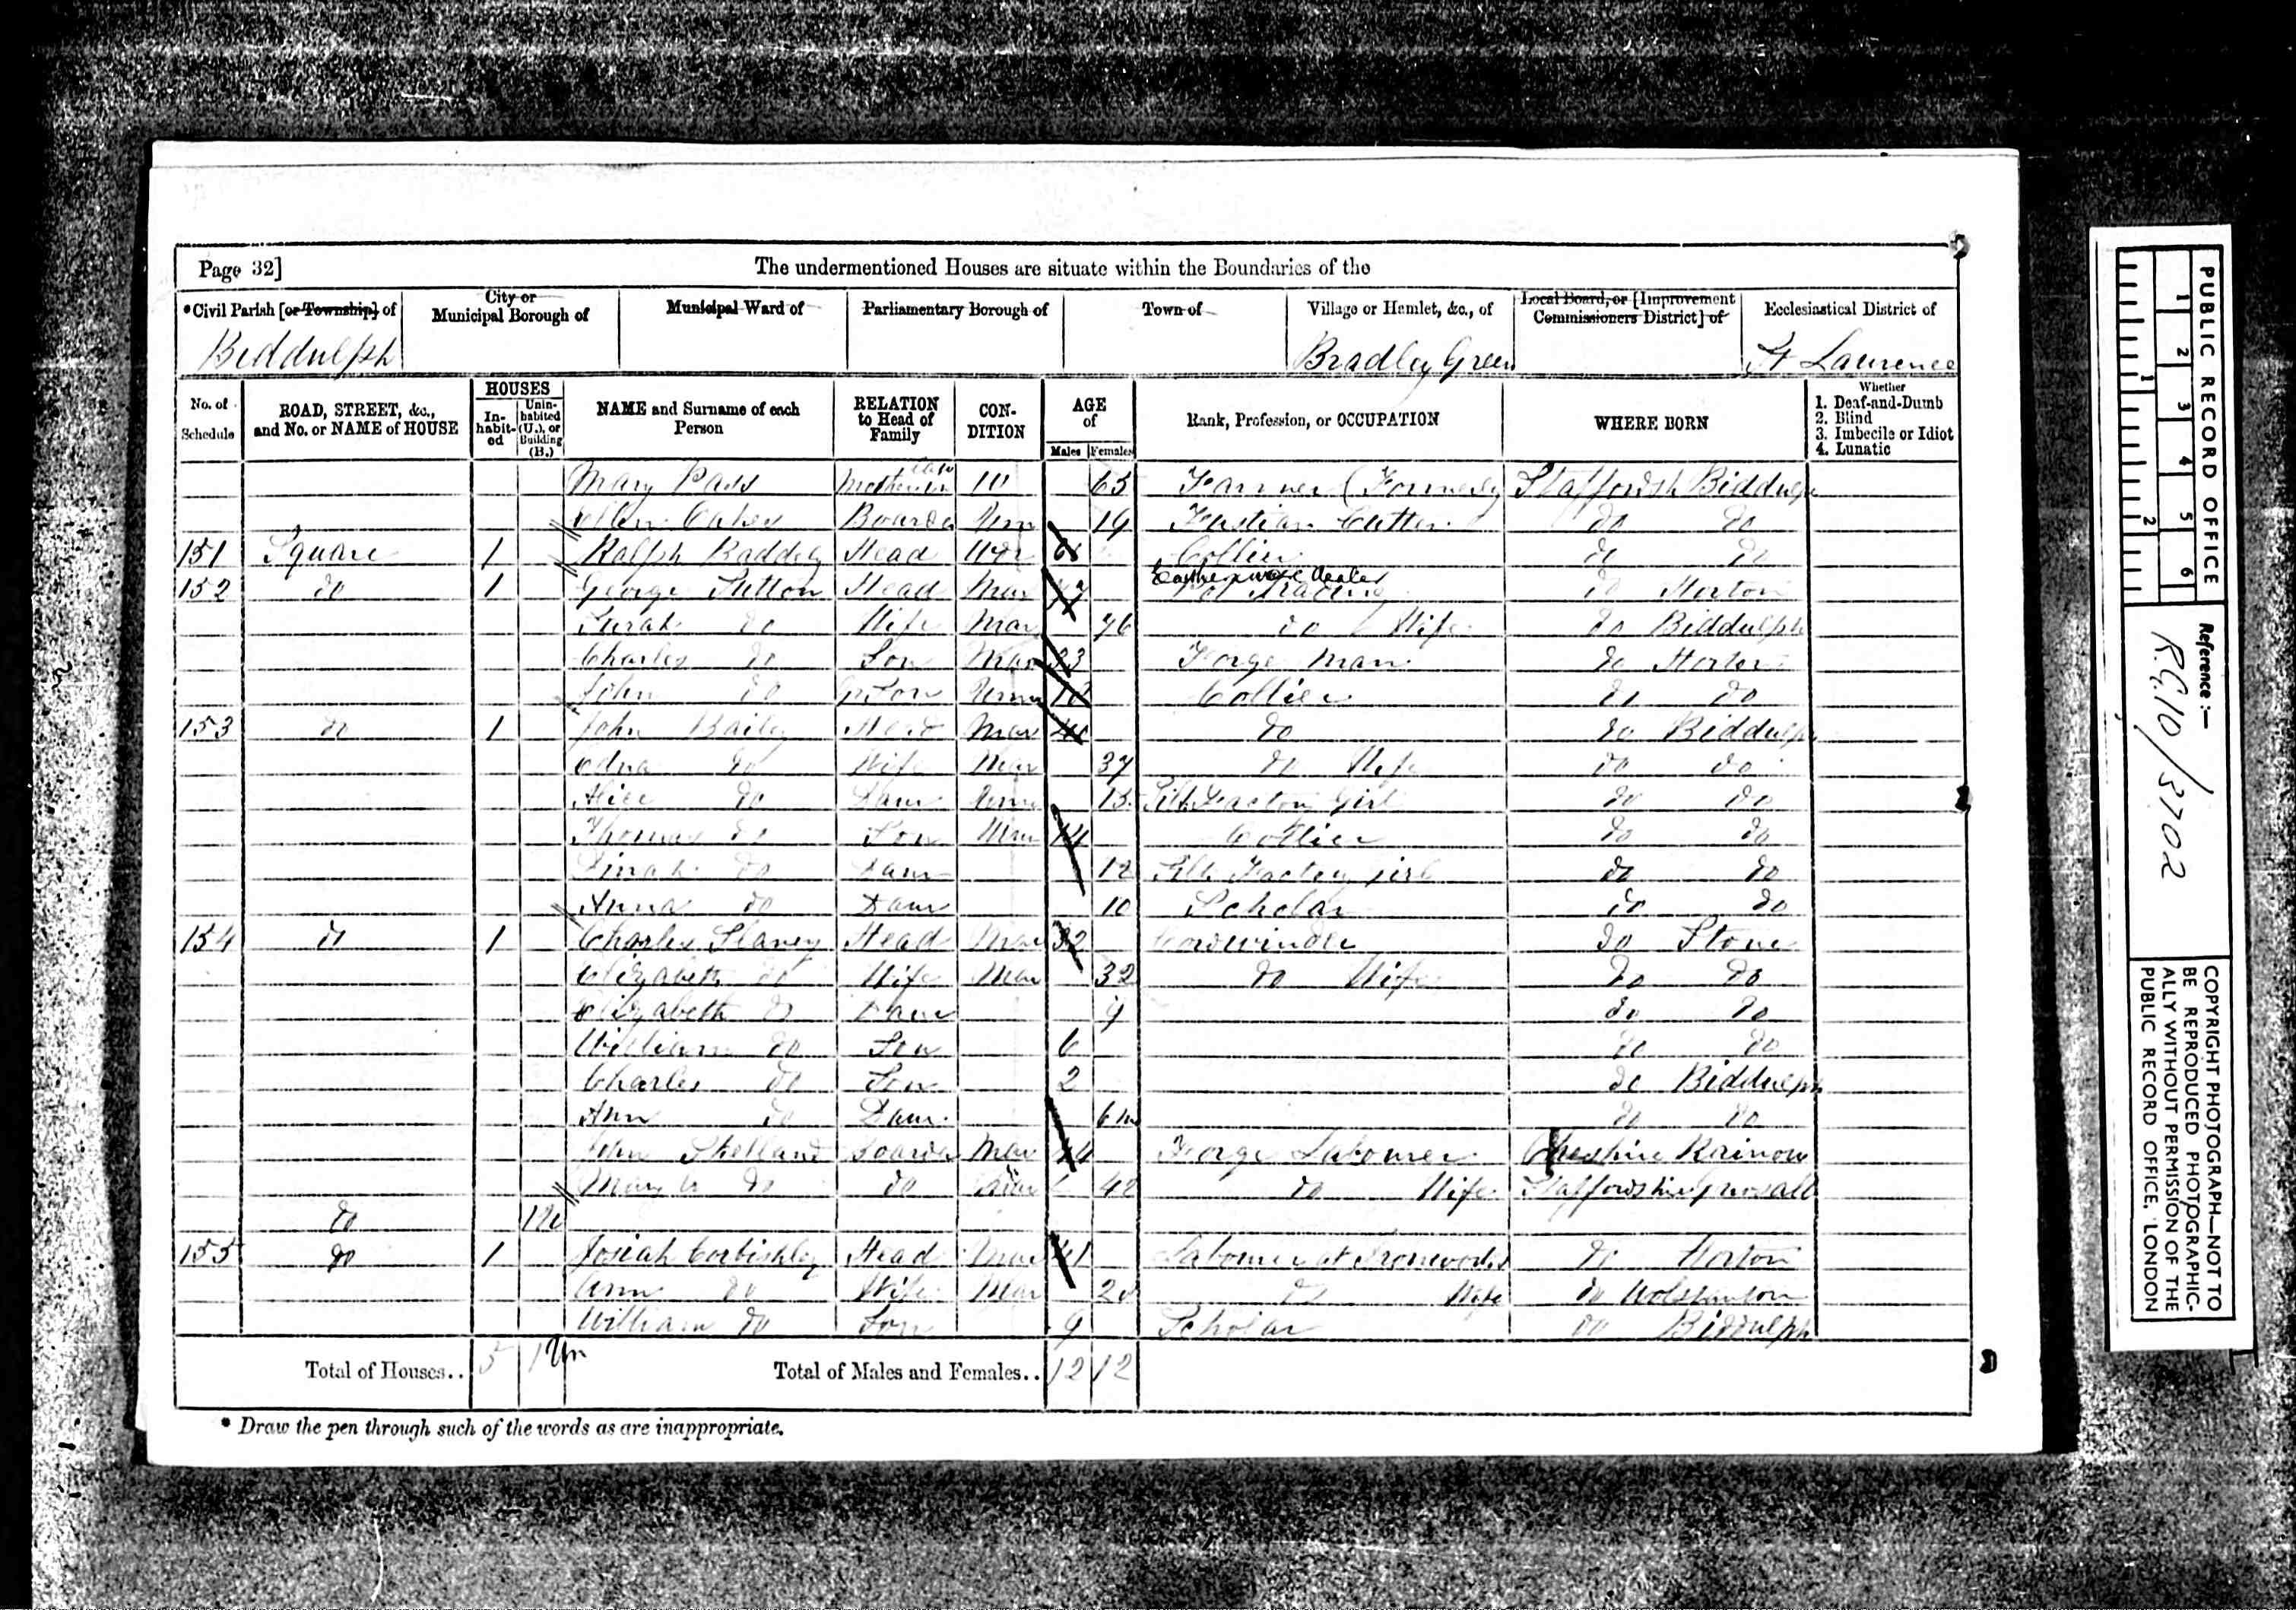 Page 32]
The undermentioned Houses are situate within the Boundaries of the
*Civil Parish [or Township] of
City or Municipal Borough of
Municipal Ward of
Parliamentary Borough of
Town of
Village or Hamlet, &c., of
Local Board, or [Improvement Commissioners District] of
Ecclesiastical District of
Biddulph Bradley Green St Laurence
No. of Schedule
ROAD, STREET, &c., and No. or NAME of HOUSE
HOUSES
In-habit-ed
Unin-habited (U.), or Building (B.)
NAME and Surname of each Person
RELATION to Head of Family
CON-DITION
AGE of
Males Females
Rank, Profession, or OCCUPATION
WHERE BORN
Whether
1. Deaf-and-Dumb
2. Blind
3. Imbecile or Idiot
4. Lunatic
Mary 65 Farmer (Formerly Staffordsh Biddulph
Ellen Oakes Boarder Unm 19 Fustian Cutter do do
151 Square 1 Ralph Baddely Head Wdr Collier do do
152 do 1 George Sutton Head Mar Earthenware Dealer do Norton
Sarah do Wife Mar 76 do Wife do Biddulph
Charles do Son Mar 33 Forge Man do Norton
John do Gr Son Unm Collier do do
153 do 1 John Bailey Head Mar do do Biddulph
Edna do Wife Mar 37 do Wife do do
Alice do Daur Unm 15 Silk Factory Girl do do
Thomas do Son 14 Collier do do
Dinah do Daur 12 Silk Factory girl do do
Anna do Daur 10 Scholar do do
154 do 1 Charles Slaney Head Mar 32 Cordwinder do Stone
Elizabeth do Wife Mar 32 do Wife do do
Elizabeth do Daur 9 do do
William do Son 6 do do
Charles do Son 2 do Biddulph
Ann do Daur 6m do do
John Shelland Boarder Mar 44 Forge Labourer Cheshire Rainow
Mary do do 48 do Wife Staffordshire Gnosall
do 1U
155 do 1 Josiah Corbishley Head Mar 41 Labourer at Ironworks do Norton
Ann do Wife Mar do Wife do Wolstanton
William do Son 9 Scholar do Biddulph
Total of Houses.. 5 1 Un Total of Males and Females.. 12 12
* Draw the pen through such of the words as are inappropriate.
PUBLIC RECORD OFFICE
1 2 3 4 5 6
1 2
Reference:-
R.G.10/3702
COPYRIGHT PHOTOGRAPH—NOT TO
BE REPRODUCED PHOTOGRAPHIC-
ALLY WITHOUT PERMISSION OF THE
PUBLIC RECORD OFFICE, LONDON